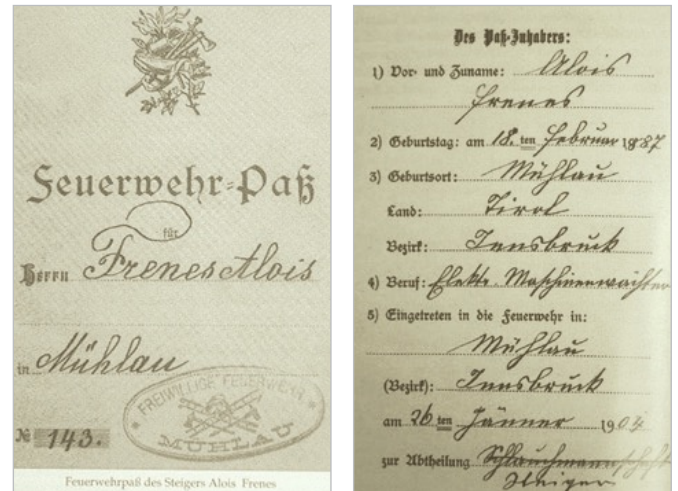 Feuerwehr-Paß
für
Herrn Frenes Alois
in Mühlau
FREIWILLIGE FEUERWEHR
MÜHLAU
№ 143.
Feuerwehrpaß des Steigers Alois Frenes
Des Paß-Inhabers:
1) Vor- und Zuname: Alois
Frenes
2) Geburtstag: am 18. ten Februar 1887
3) Geburtsort: Mühlau
Land: Tirol
Bezirk: Innsbruck
4) Beruf: Elektr. Maschinenwächter
5) Eingetreten in die Feuerwehr in:
Mühlau
(Bezirk): Innsbruck
am 26 ten Jänner 1904
zur Abtheilung Schlauchmannschaft
Steiger